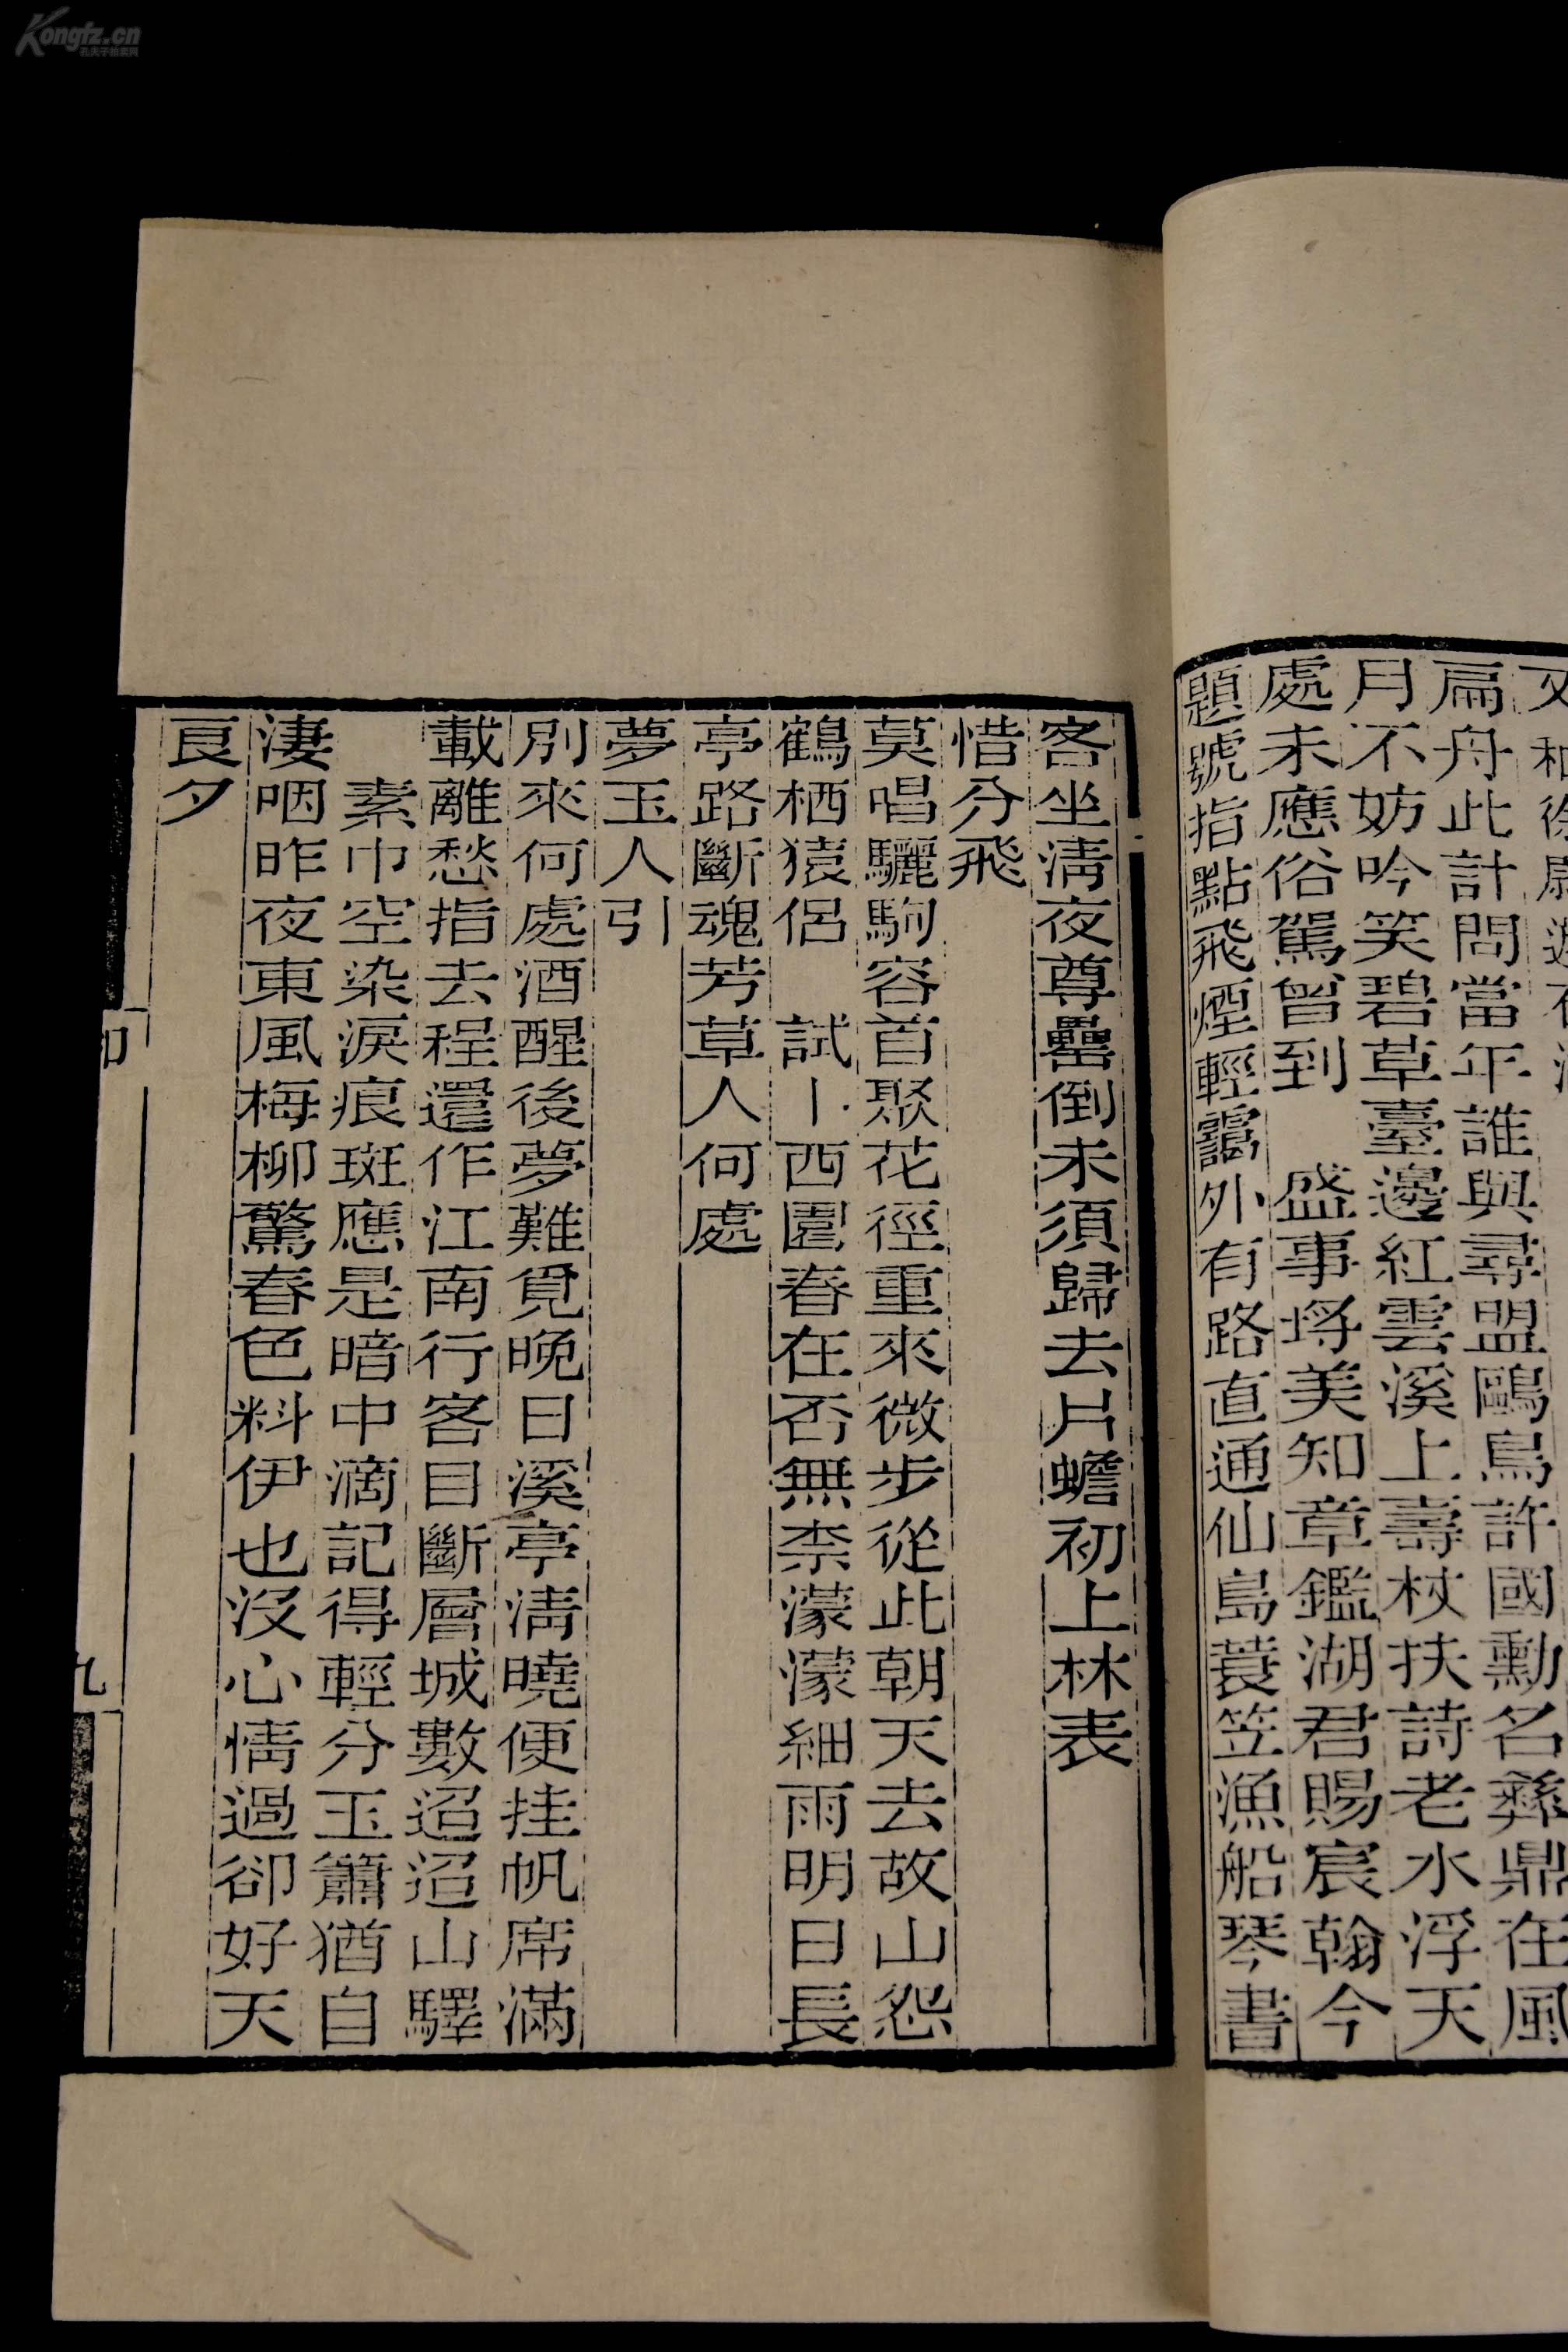 Kongfz.cn
孔夫子旧书网
扁舟此計問當年誰與尋盟鷗鳥許國勳名彝鼎在風
月不妨吟笑碧草臺邊紅雲溪上壽杖扶詩老水浮天
處未應俗駕曾到　盛事將美知章鑑湖君賜宸翰今
題號指點飛煙輕靄外有路直通仙島蓑笠漁船琴書
客坐清夜尊罍倒未須歸去片蟾初上林表
惜分飛
莫唱驪駒容首聚花徑重來微步從此朝天去故山怨
鶴栖猿侶　試卜西園春在否無柰濛濛細雨明日長
亭路斷魂芳草人何處
夢玉人引
別來何處酒醒後夢難覓晚日溪亭清曉便挂帆席滿
載離愁指去程還作江南行客目斷層城數迢迢山驛
素巾空染淚痕斑應是暗中滴記得輕分玉簫猶自
淒咽昨夜東風梅柳驚春色料伊也沒心情過卻好天
良夕
九